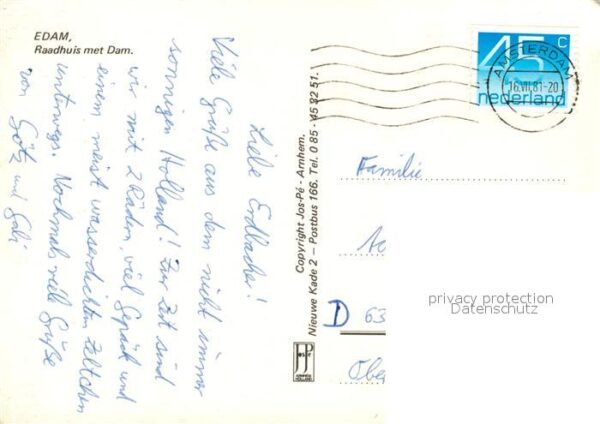 EDAM,
Raadhuis met Dam.
Liebe Erdbacher!
Viele Grüße aus dem nicht immer
sonnigen Holland! Zur Zeit sind
wir mit 2 Rädern, viel Gepäck und
einem meist wasserdichten Zeltchen
unterwegs. Nochmals viele Grüße
von Götz und Gabi
Copyright Jos-Pé - Arnhem.
Nieuwe Kade 2 - Postbus 166. Tel. 085 - 45 32 51.
JOS PÉ
ARNHEM
HOLLAND
45 c
nederland
AMSTERDAM
16.VII.81-20
Familie
D 63
Obe
privacy protection
Datenschutz